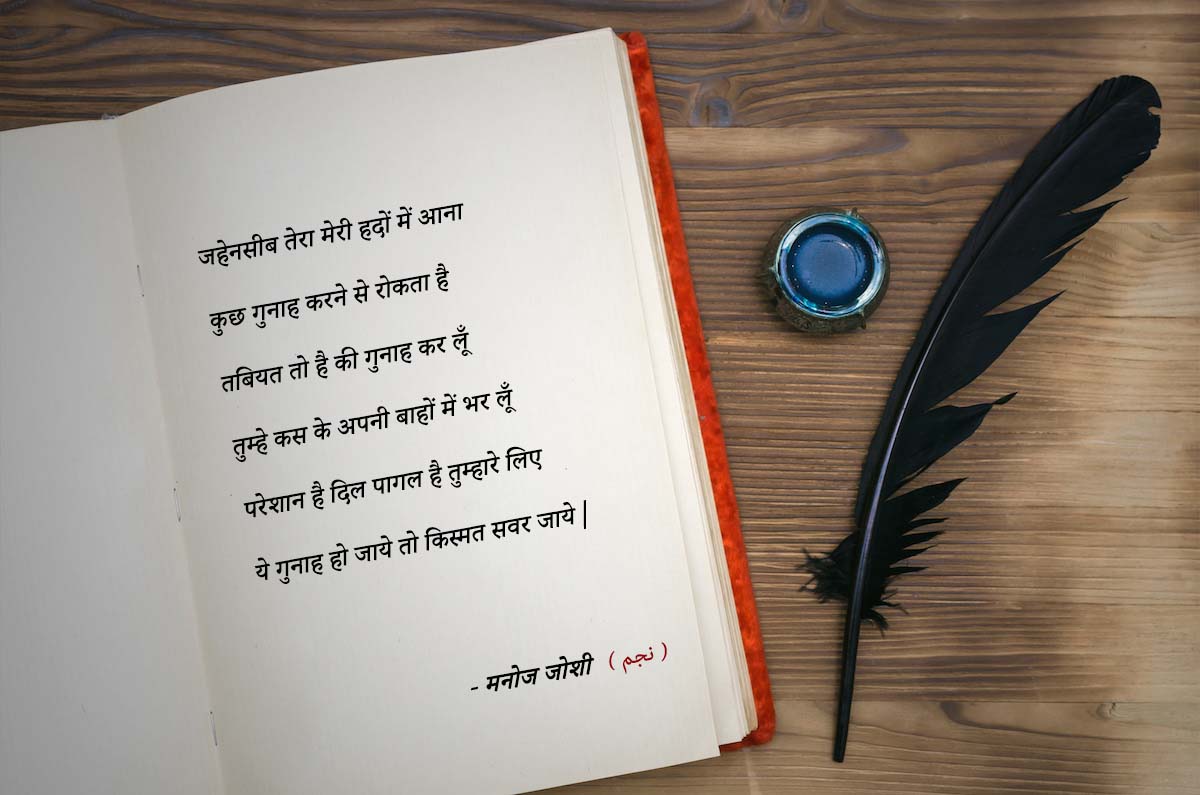 जहेनसीब तेरा मेरी हदों में आना
कुछ गुनाह करने से रोकता है
तबियत तो है की गुनाह कर लूँ
तुम्हे कस के अपनी बाहों में भर लूँ
परेशान है दिल पागल है तुम्हारे लिए
ये गुनाह हो जाये तो किस्मत सवर जाये |
- मनोज जोशी ( نجم )